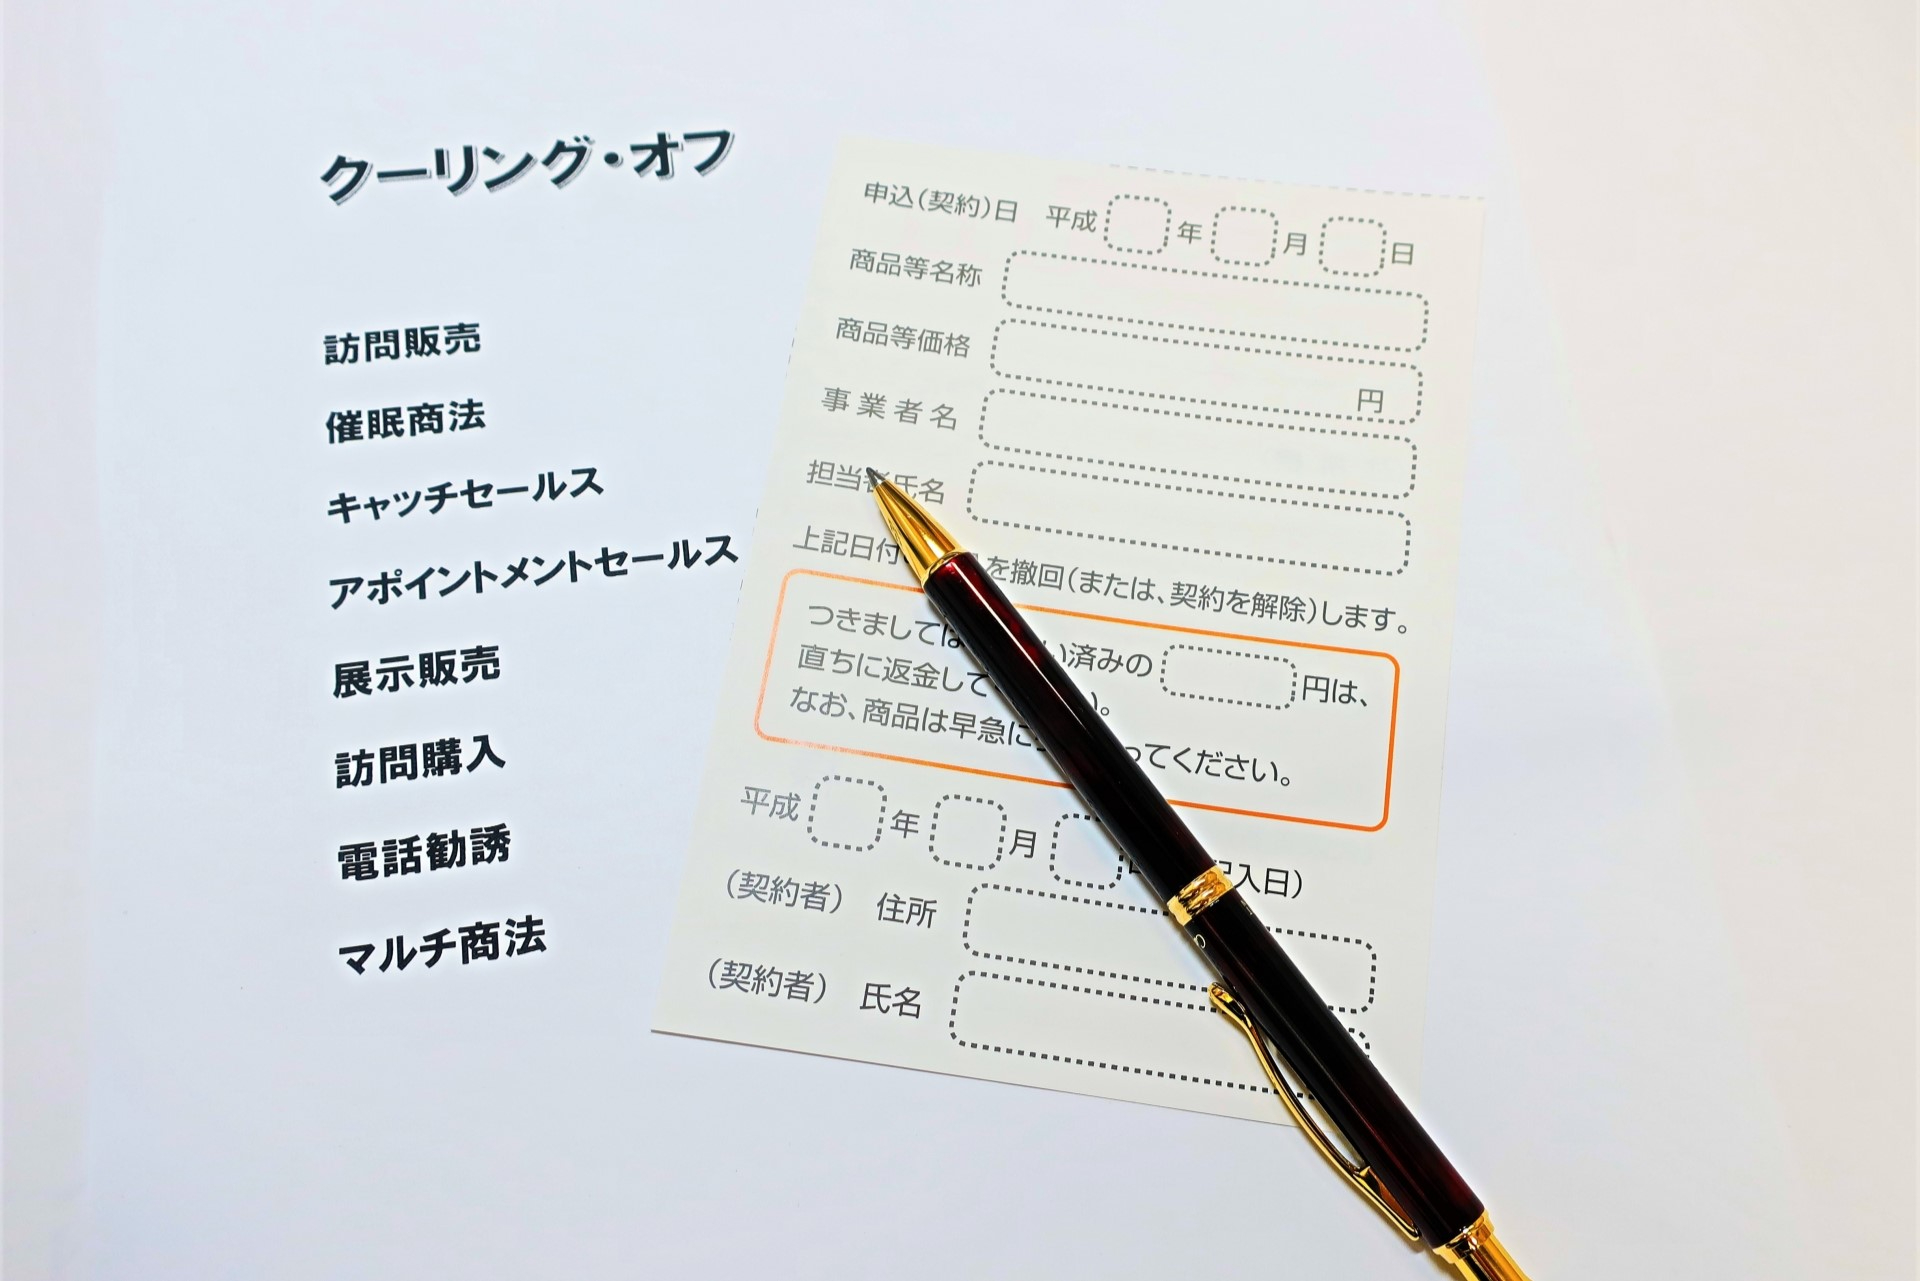 クーリング・オフ
訪問販売
催眠商法
キャッチセールス
アポイントメントセールス
展示販売
訪問購入
電話勧誘
マルチ商法
申込(契約)日 平成 年 月 日
商品等名称
商品等価格 円
事業者名
担当者氏名
上記日付 を撤回(または、契約を解除)します。
つきましては 済みの 円は、
直ちに返金して 。
なお、商品は早急に ってください。
平成 年 月 入日)
(契約者) 住所
(契約者) 氏名